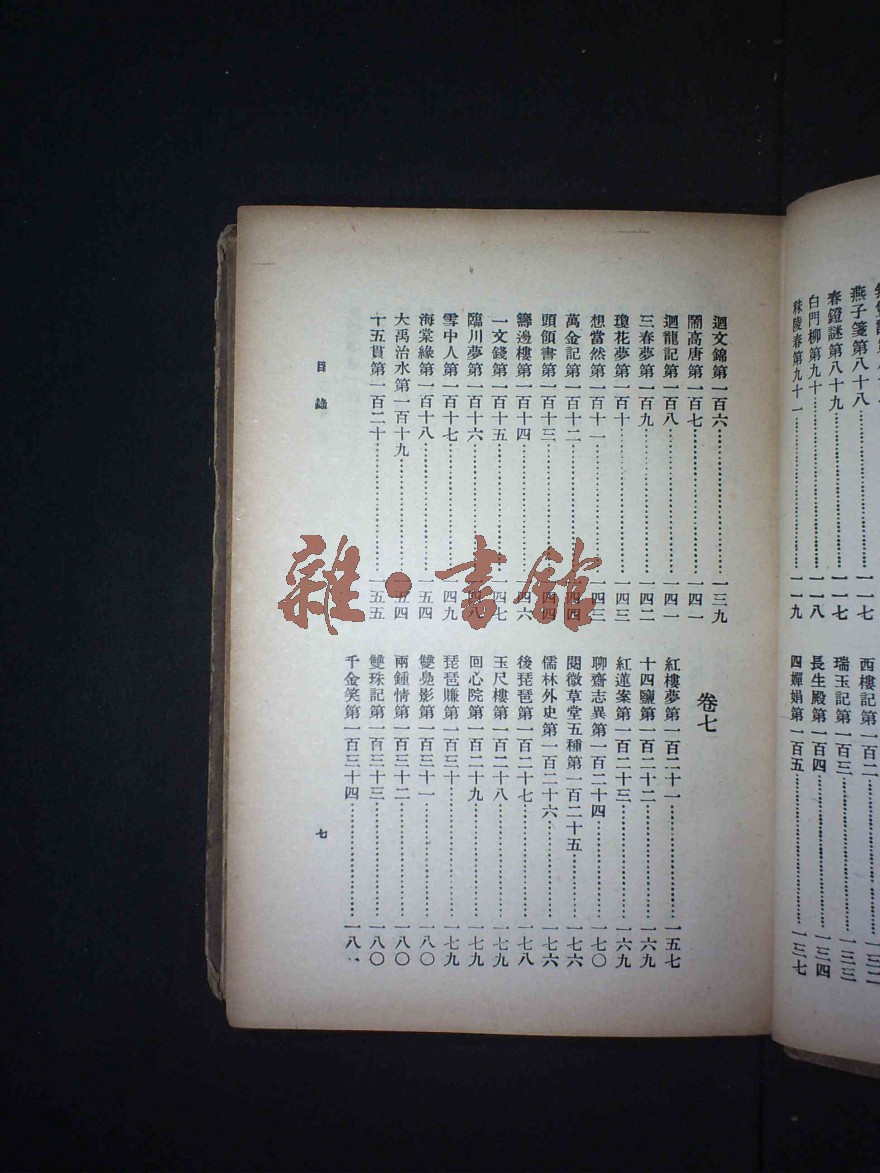 燕子箋第八十八
春鐙謎第八十九………一一七
白門柳第九十………一一八
秣陵春第九十一………一一九
西樓記第一百二………一三二
瑞玉記第一百三………一三三
長生殿第一百四………一三四
四嬋娟第一百五………一三七
迴文錦第一百六………一三九
鬧高唐第一百七………一四一
迴龍記第一百八………一四一
三春夢第一百九………一四二
瓊花夢第一百十………一四三
想當然第一百十一………一四三
萬金記第一百十二………一四四
頭顱書第一百十三………一四四
籌邊樓第一百十四………一四六
一文錢第一百十五………一四七
臨川夢第一百十六………一四八
雪中人第一百十七………一四九
海棠緣第一百十八………一五四
大禹治水第一百十九………一五四
十五貫第一百二十………一五五
卷七
紅樓夢第一百二十一………一五七
十四鹽第一百二十二………一六九
紅蓮案第一百二十三………一六九
聊齋志異第一百二十四………一七〇
閱微草堂五種第一百二十五………一七六
儒林外史第一百二十六………一七六
後琵琶第一百二十七………一七八
玉尺樓第一百二十八………一七九
回心院第一百二十九………一七九
琵琶賺第一百三十………一七九
雙鳧影第一百三十一………一八〇
兩鍾情第一百三十二………一八〇
雙珠記第一百三十三………一八〇
千金笑第一百三十四………一八一
目錄
七
雜·書館